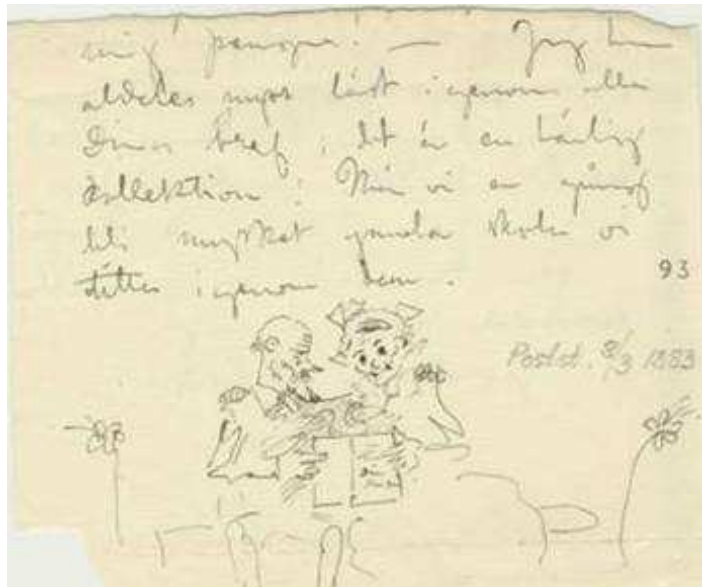 mig pengar! — Jag har
alldeles nyss läst igenom alla
Dina bref, det är en härlig
collektion! När vi en gång
bli mycket gamla skola vi
titta igenom dem.
93
Postst. 8/3 1883